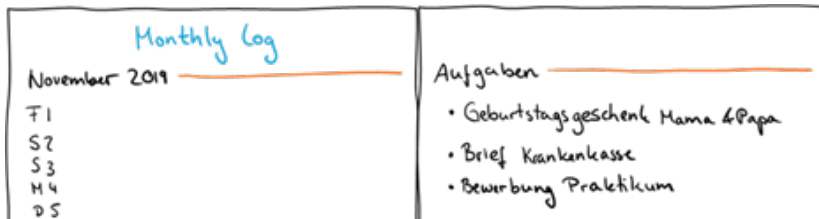 Monthly Log
November 2019
F 1
S 2
S 3
M 4
D 5
Aufgaben
• Geburtstagsgeschenk Mama & Papa
• Brief Krankenkasse
• Bewerbung Praktikum